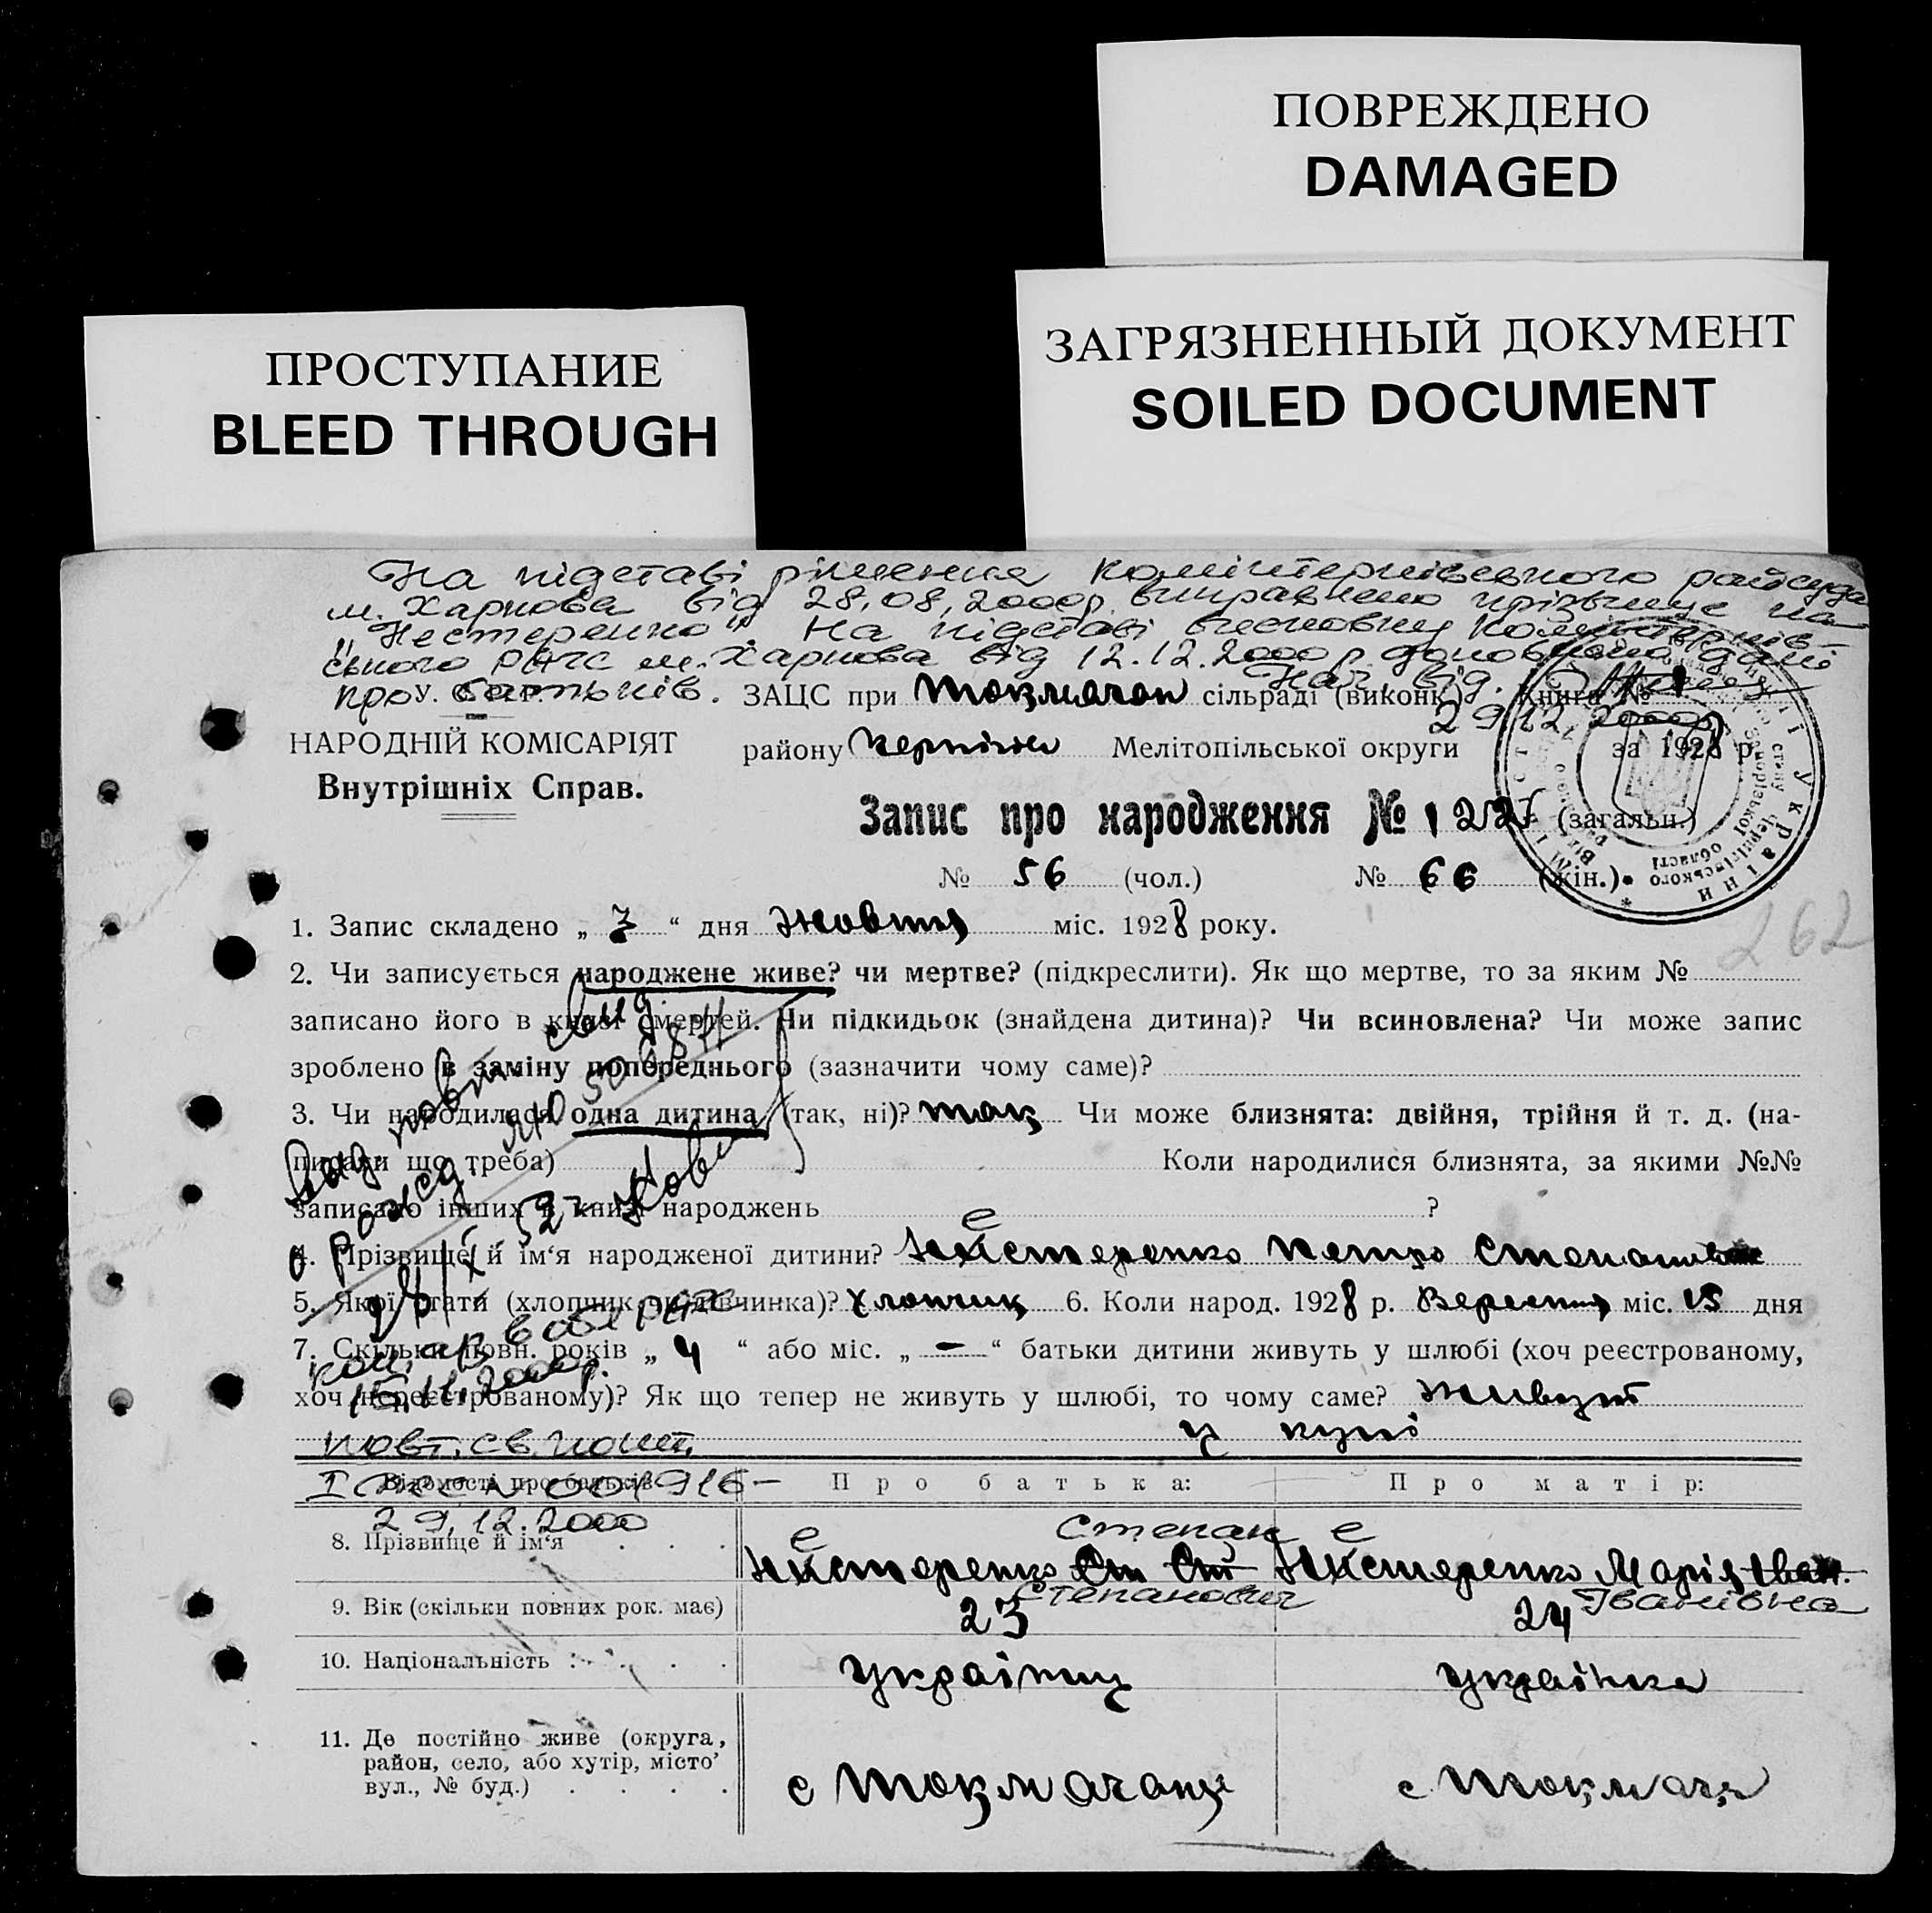 ПОВРЕЖДЕНО
DAMAGED
ЗАГРЯЗНЕННЫЙ ДОКУМЕНТ
SOILED DOCUMENT
ПРОСТУПАНИЕ
BLEED THROUGH
На підставі рішення Комінтернівського райсуда
м. Харкова від 28.08.2000р. виправлено прізвище на
„Нестеренко". На підставі висновку Комінтернів-
ського РАГС м. Харкова від 12.12.2000 р доповнено дані
про батьків. Нач. від.
29.12.2000р
У. С. Р. Р.
НАРОДНІЙ КОМІСАРІЯТ
Внутрішніх Справ.
ЗАЦС при сільраді (виконк.) Книга № 1
району Мелітопільської округи за 1928 р.
Запис про народження № 122 (загальн.)
№ 56 (чол.) № 66 (жін.)
262
1. Запис складено „ 7 “ дня Жовтня міс. 1928 року.
2. Чи записується народжене живе? чи мертве? (підкреслити). Як що мертве, то за яким №
записано його в книзі смертей. Чи підкидьок (знайдена дитина)? Чи всиновлена? Чи може запис
зроблено в заміну попереднього (зазначити чому саме)?
3. Чи народилася одна дитина (так, ні)? так Чи може близнята: двійня, трійня й т. д. (на-
писати що треба) Коли народилися близнята, за якими №№
записано інших в книзі народжень ?
4. Прізвище й ім‘я народженої дитини? Нестеренко Петро Степанович
5. Якої статі (хлопчик чи дівчинка)? хлопчик 6. Коли народ. 1928 р. Вересня міс. 15 дня
7. Скільки повн. років „ 4 “ або міс. „ — “ батьки дитини живуть у шлюбі (хоч реєстрованому,
хоч нереєстрованому)? Як що тепер не живуть у шлюбі, то чому саме? живуть
у купі
Выд. повт. свид
о рожд. ЯЮ
15.11.2000р.
повт. св. пошт.
29.12.2000
Відомості про батьків
Про батька:
Про матір:
8. Прізвище й ім‘я . . . Нестеренко Степан Степанович Нестеренко Марія Іванівна
9. Вік (скільки повних рок. має) 23 24
10. Національність . . . . українец українка
11. Де постійно живе (округа,
район, село, або хутір, місто’
вул., № буд.) . . . .
с Токмачани с Токмач